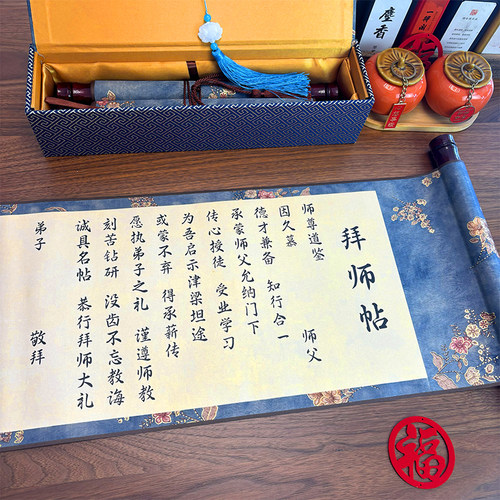 拜师帖
师尊道鉴 师父
因久慕
德才兼备 知行合一
承蒙师父允纳门下
传心授徒 受业学习
为吾启示津梁坦途
或蒙不弃 得承薪传
愿执弟子之礼 谨遵师教
刻苦钻研 没齿不忘教诲
诚具名帖 恭行拜师大礼
弟子 敬拜
麝香
福